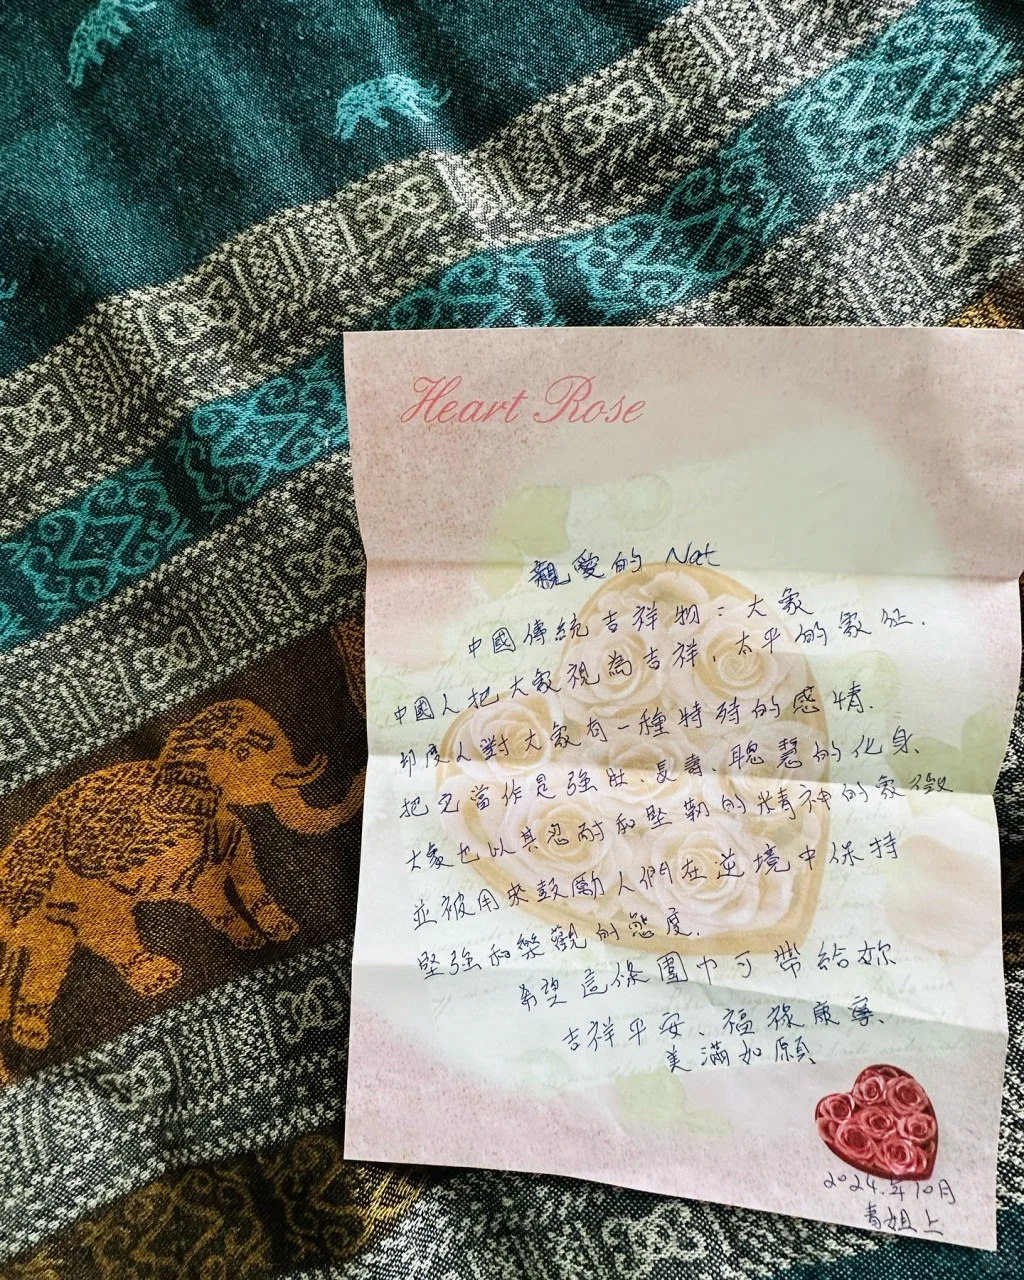 Heart Rose
親愛的 Nat
中國傳統吉祥物：大象
中國人把大象視為吉祥，太平的象征.
印度人對大象有一種特殊的感情.
把它當作是強壯、長壽、聰慧的化身、
大象也以其忍耐和堅韌的精神的象徵
並被用來鼓勵人們在逆境中保持
堅強和樂觀的態度.
希望這條圍巾可帶給妳
吉祥平安、福祿康寧、
美滿如願
2024.年10月
青姐上